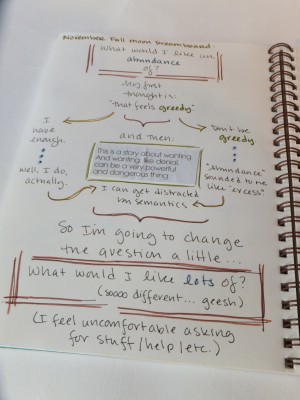 November Full Moon Dreamboard:
What would I like an
abundance
of?
My first
thought is:
"that feels greedy"
I
have
enough.
well, I do,
actually.
and then:
This is a story about wanting.
And wanting, like denial,
can be a very powerful
and dangerous thing.
Don't be
greedy
"Abundance"
sounded to me
like "excess"
I can get distracted
by semantics
So I'm going to change
the question a little...
What would I like lots of?
(soooo different... geesh)
(I feel uncomfortable asking
for stuff/help/etc.)